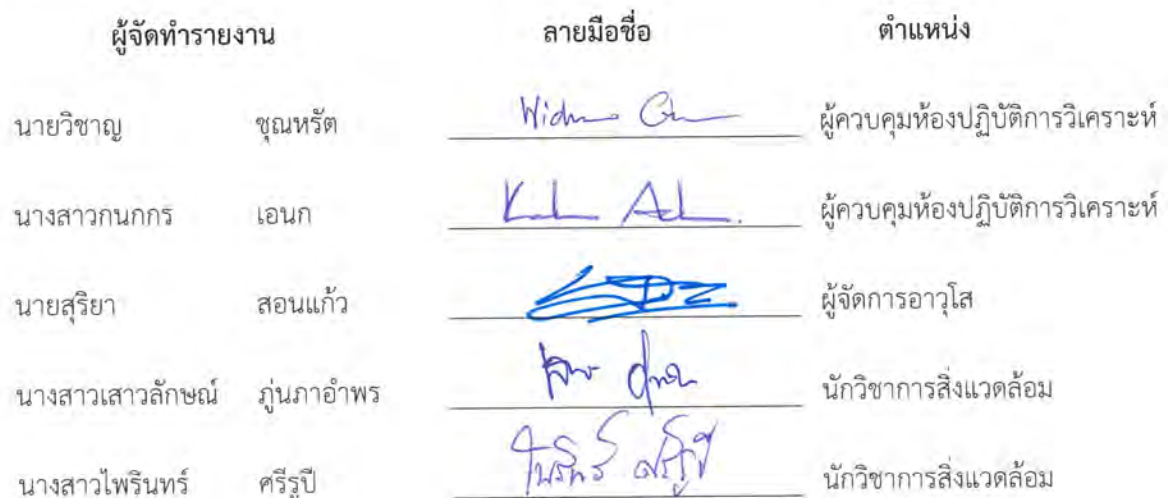 ผู้จัดทำรายงาน ลายมือชื่อ ตำแหน่ง
นายวิชาญ ชุณหรัต ผู้ควบคุมห้องปฏิบัติการวิเคราะห์
นางสาวกนกกร เอนก ผู้ควบคุมห้องปฏิบัติการวิเคราะห์
นายสุริยา สอนแก้ว ผู้จัดการอาวุโส
นางสาวเสาวลักษณ์ ภู่นภาอำพร นักวิชาการสิ่งแวดล้อม
นางสาวไพรินทร์ ศรีรูปี ไพรินทร์ ศรีรูปี นักวิชาการสิ่งแวดล้อม